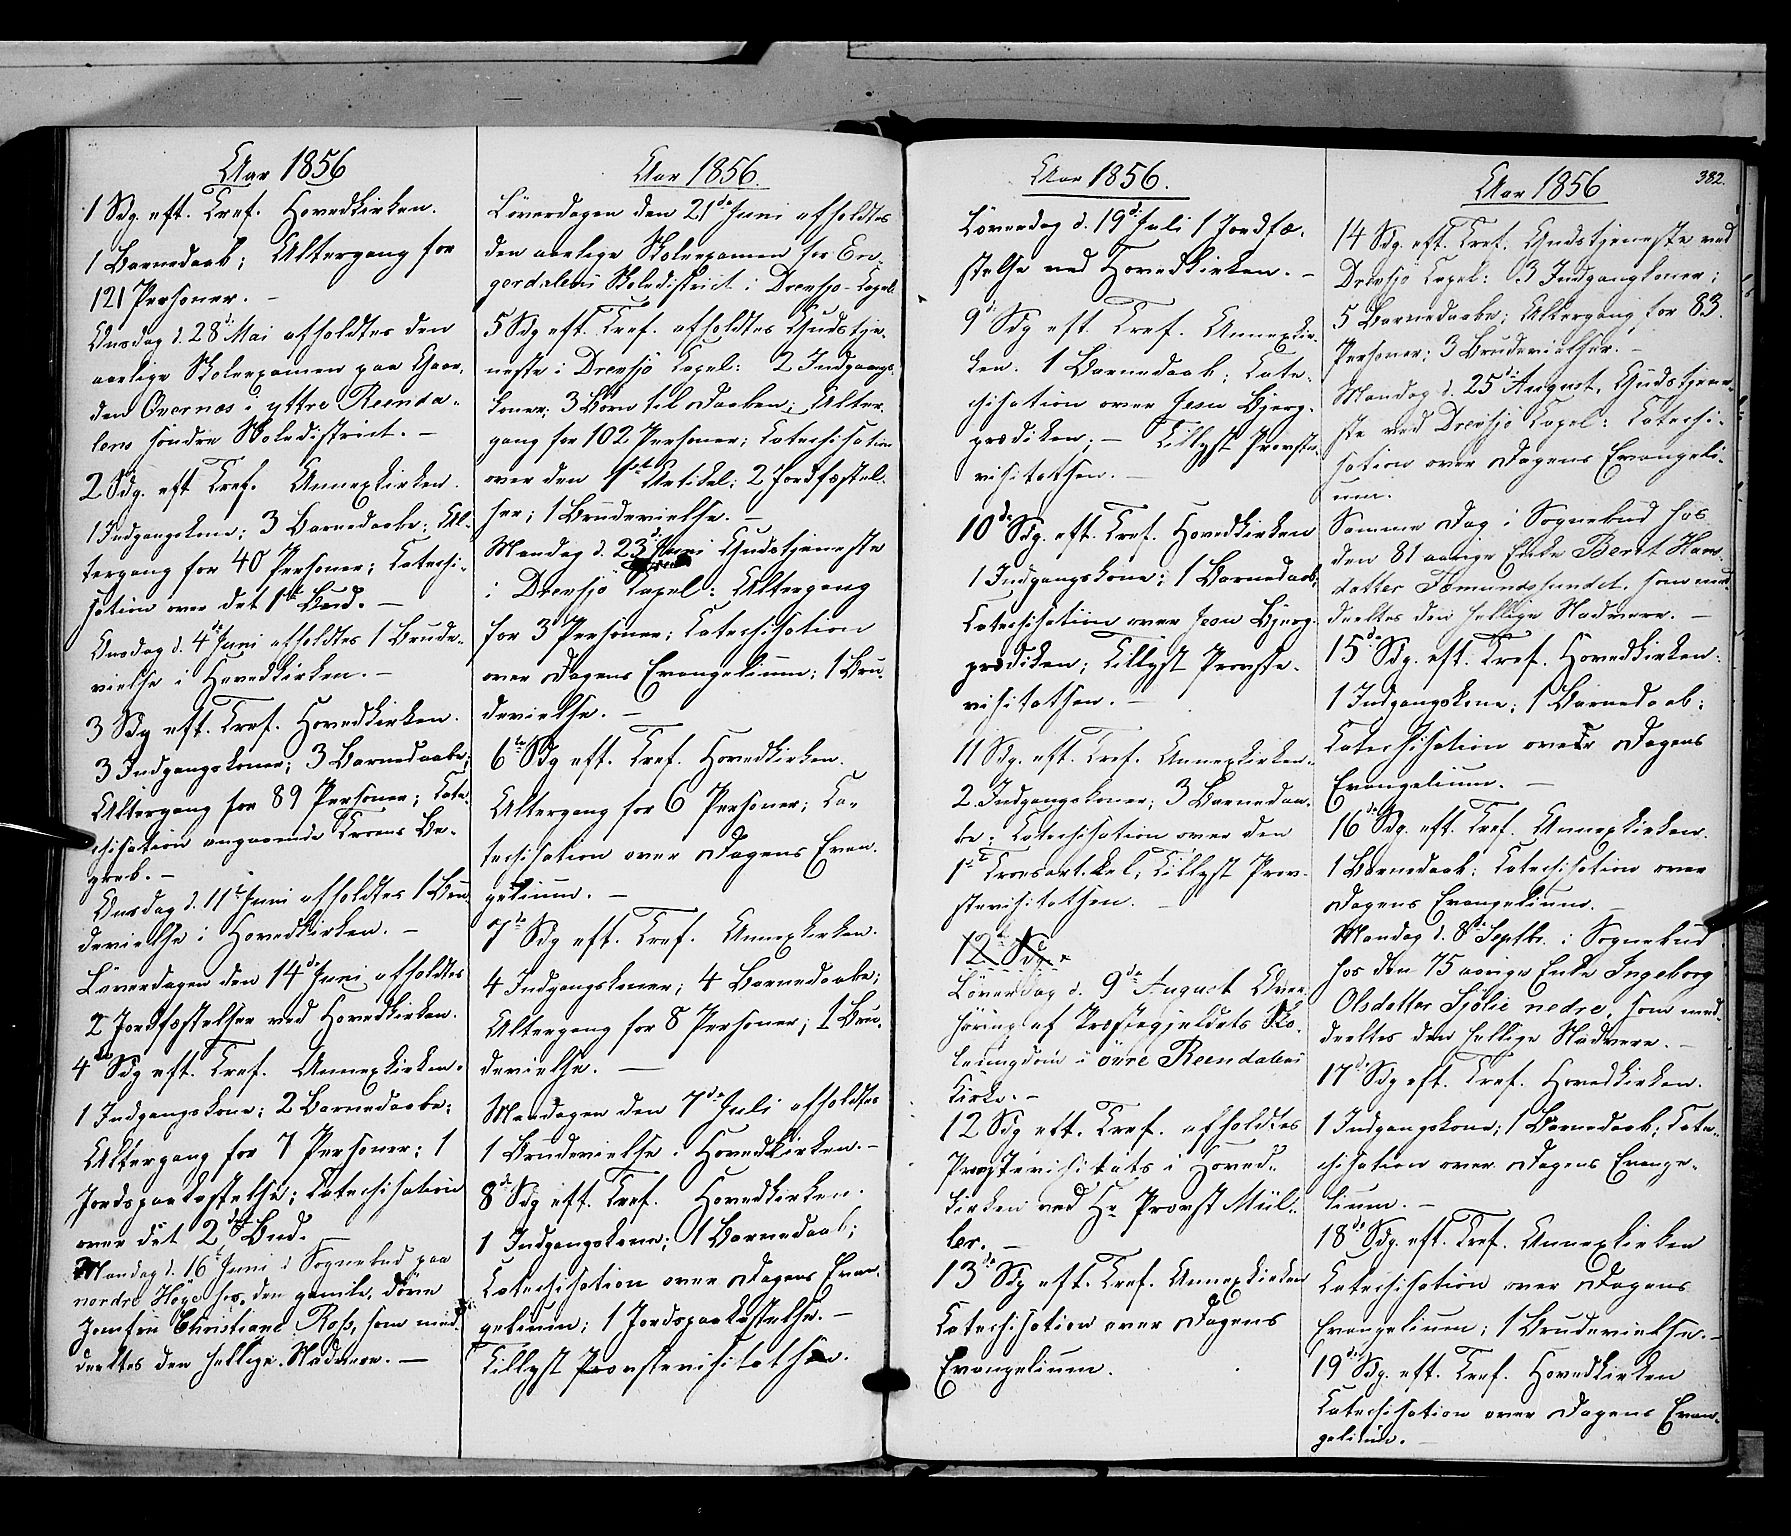 Aar 1856
1 Sdg. eft. Tref. Hovedkirken.
1 Barnedaab; Altergang for
121 Personer. –
Onsdag d. 28de Mai afholdtes den
aarlige Skoleexamen paa Gaar-
den Övernæs i yttre Reenda-
lens søndre Skoledistrict. –
2 Sdg. eft Tref. Annexkirken.
1 Indgangskone; 3 Barnedaabe; Al-
tergang for 40 Personer; Catechi-
sation over det 1ste Bud. –
Onsdag d. 4de Juni afholdtes 1 Brude-
vielse i Hovedkirken. –
3 Sdg eft. Tref. Hovedkirken.
3 Indgangskoner; 3 Barnedaabe;
Altergang for 89 Personer; Cate-
chisation angaaende Troens Be-
greb. –
Onsdag d. 11te Juni afholdtes 1 Bru-
devielse i Hovedkirken. –
Løverdagen den 14de Juni afholdtes
2 Jordfæstelser ved Hovedkirken.
4de Sdg eft. Tref. Annexkirken.
1 Indgangskone; 2 Barnedaabe;
Altergang for 7 Personer; 1
Jordspaakastelse; Catechisation
over det 2det Bud. –
Mandag d. 16de Juni i Sognebud paa
nordre Høye hos den gamle, döve
Jomfru Christiane Ross, som med-
deeltes den hellige Nadvere. –
Aar 1856.
Løverdagen den 21de Juni afholdtes
den aarlige Skoleexamen for En-
gerdalens Skoledistrict i Drevsjö-Capel
5 Sdg eft. Tref. afholdtes Gudstje-
neste i Drevsjö Capel: 2 Indgangs-
koner; 3 Børn til Daaben; Alter-
gang for 102 Personer; Catechisation
over den 1ste Artikel; 2 Jordfæstel-
ser; 1 Brudevielse. –
Mandag d. 23de Juni Gudstjeneste
i Drevsjö Capel: Altergang
for 3 Personer; Catechisation
over Dagens Evangelium; 1 Bru-
devielse. –
6te Sdg eft. Tref. Hovedkirken.
Altergang for 6 Personer; Ca-
techisation over Dagens Evan-
gelium. –
7de Sdg eft. Tref. Annexkirken.
4 Indgangskoner; 4 Barnedaabe;
Altergang for 8 Personer; 1 Bru-
devielse. –
Mandagen den 7de Juli afholdtes
1 Brudevielse i Hovedkirken. –
8de Sdg eft. Tref. Hovedkirken.
1 Indgangskone; 1 Barnedaab;
Catechisation over Dagens Evan-
gelium; 1 Jordspaakastelse. –
Tillyst Provstevisitathsen.
Aar 1856.
Løverdag d. 19de Juli 1 Jordfæ-
stelse ved Hovedkirken. –
9de Sdg eft. Tref. Annexkir-
ken. 1 Barnedaab; Cate-
chisation over Jesu Bjerg-
prædiken; – Tillyst Provste-
visitathsen. –
10de Sdg. eft. Tref. Hovedkirken
1 Indgangskone; 1 Barnedaab;
Catechisation over Jesu Bjerg-
prædiken; Tillyst Provste-
visitathsen. –
11 Sdg. eft. Tref. Annexkirken.
2 Indgangskoner; 3 Barnedaa-
be; Catechisation over den
1ste Troesartikel; Tillyst Prov-
stevisitathsen. –
12te Sdg.
Løverdag d. 9de August Over-
høring af Præstegjeldets Sko-
leungdom i övre Reendalens
Kirke. –
12 Sdg eft. Tref. afholdtes
Provstevisitats i Hoved-
kirken ved Hr Provst Mül-
ler. –
13de Sdg eft. Tref. Annexkirken
Catechisation over Dagens
Evangelium.
Aar 1856
382.
14 Sdg. eft. Tref. Gudstjeneste ved
Drevsjö Capel: 3 Indgangskoner;
5 Barnedaabe; Altergang for 83
Personer; 3 Brudevielser. –
Mandag d. 25de August, Gudstjene-
ste ved Drevsjö Capel: Catechi-
sation over Dagens Evangeli-
um.
Samme Dag i Sognebud hos
den 81 aarige Enke Berit Hans-
datter Fæmundssundet, som med-
deeltes den hellige Nadvere. –
15de Sdg. eft. Tref. Hovedkirken.
1 Indgangskone; 1 Barnedaab;
Catechisation over Dagens
Evangelium. –
16de Sdg. eft. Tref. Annexkirken.
1 Barnedaab; Catechisation over
Dagens Evangelium. –
Mandag d. 8de Septbr. i Sognebud
hos den 75 aarige Enke Ingeborg
Olsdatter Sjölie nedre, som med-
deeltes den hellige Nadvere. –
17de Sdg eft. Tref. Hovedkirken.
1 Indgangskone; 1 Barnedaab; Cate-
chisation over Dagens Evange-
lium. –
18de Sdg. eft. Tref. Annexkirken
Catechisation over Dagens
Evangelium; 1 Brudevielse. –
19de Sdg. eft. Tref. Hovedkirken
Catechisation over Dagens Evan-
gelium. –